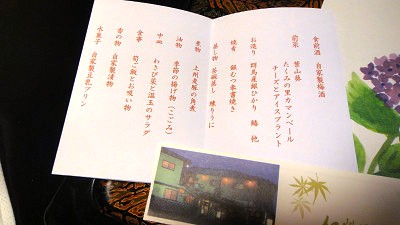 食前酒　自家製梅酒
前菜　笹山葵
たくみの里カマンベール
チーズとアイスプラント
お造り　群馬産銀ひかり　鯵　他
焼肴　銀むつ奉書焼き
蒸し物　茶碗蒸し　練りうに
煮物　上州麦豚の角煮
油物　季節の揚げ物（こごみ）
中皿　わさび菜と温玉のサラダ
食事　筍ご飯とお吸い物
香の物　自家製漬物
水菓子　自家製豆乳プリン